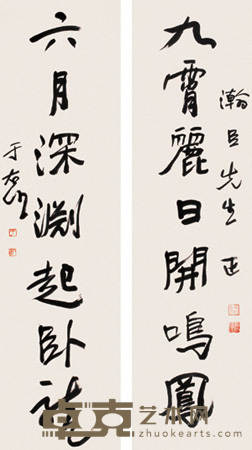 瀚臣先生 正
九霄麗日開鳴鳳
六月深淵起卧龍
于右任
卓克艺术网
zhuokearts.com